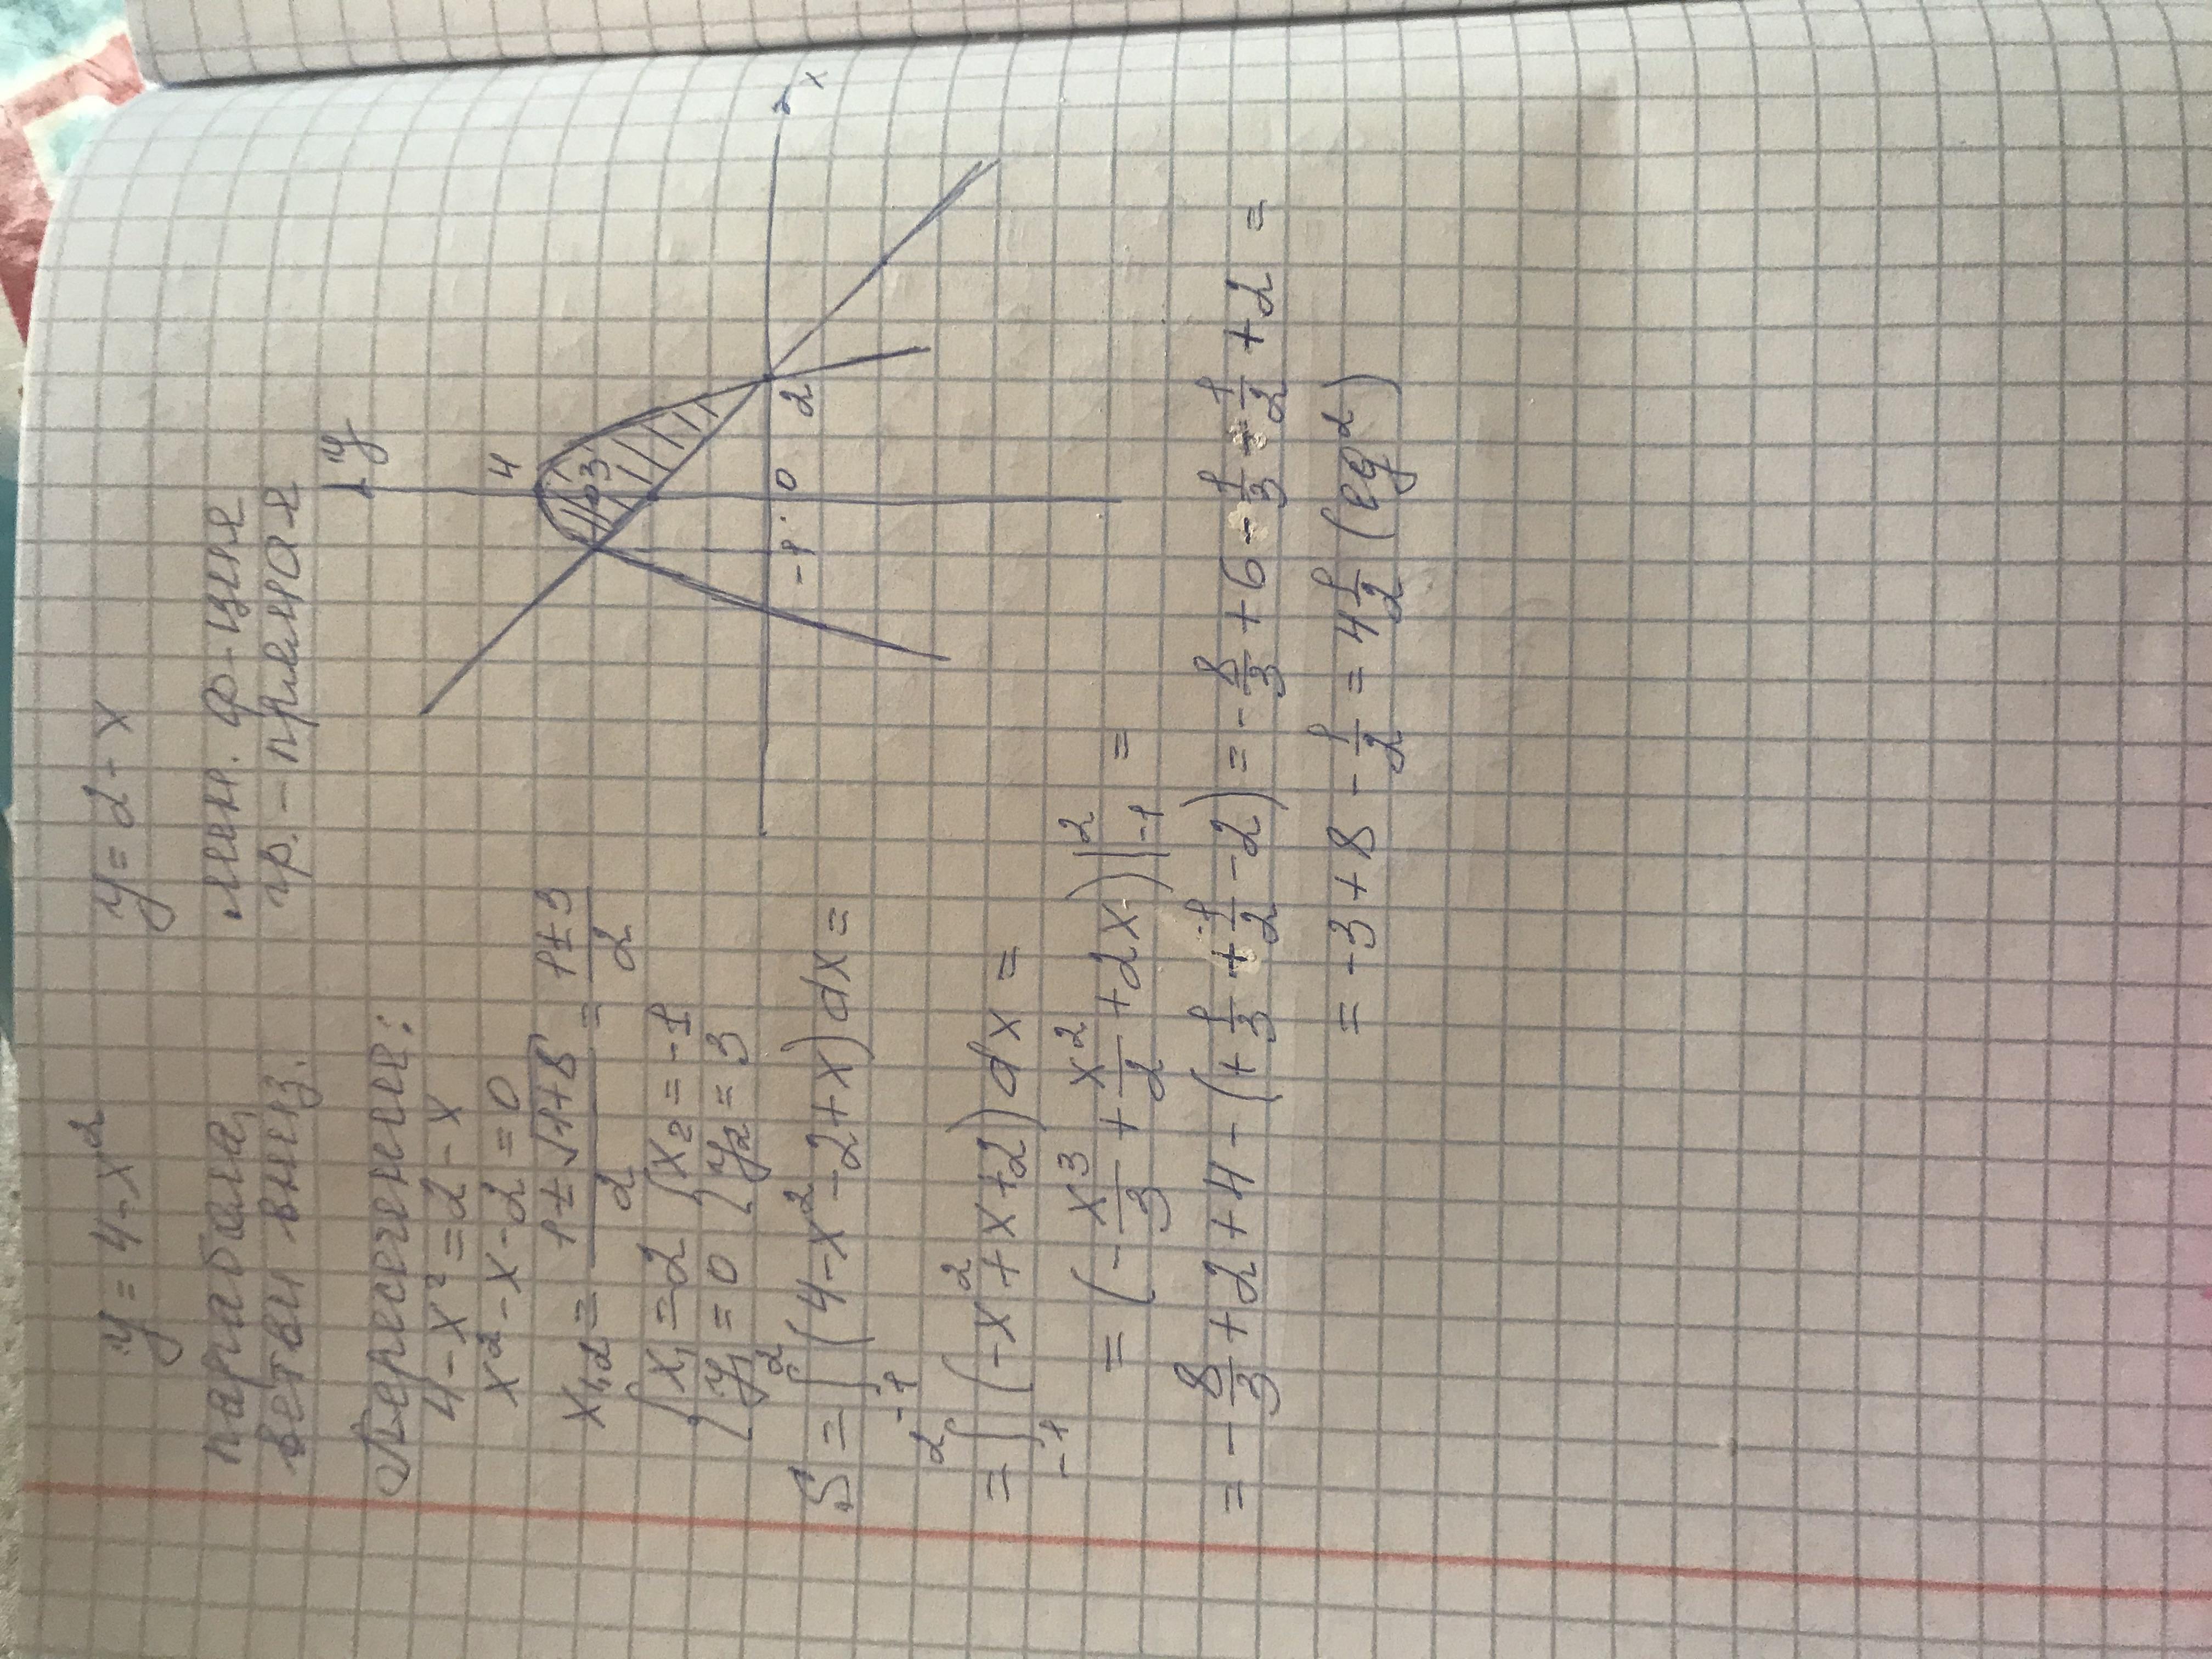 y = 4 - x² y = 2 - x
парабола, лин. ф-ция
ветви вниз. гр. - прямая
Пересечение:
4 - x² = 2 - x
x² - x - 2 = 0
x₁,₂ = (1 ± √(1+8))/2 = (1 ± 3)/2
{x₁ = 2 {x₂ = -1
{y₁ = 0 {y₂ = 3
y
4
3
-1 0 2 x
S = ∫₋₁² (4 - x² - 2 + x) dx =
= ∫₋₁² (-x² + x + 2) dx =
= (-x³/3 + x²/2 + 2x)|₋₁² =
= -8/3 + 2 + 4 - (+1/3 + 1/2 - 2) = -8/3 + 6 - 1/3 - 1/2 + 2 =
= -3 + 8 - 1/2 = 4 1/2 (ед²)